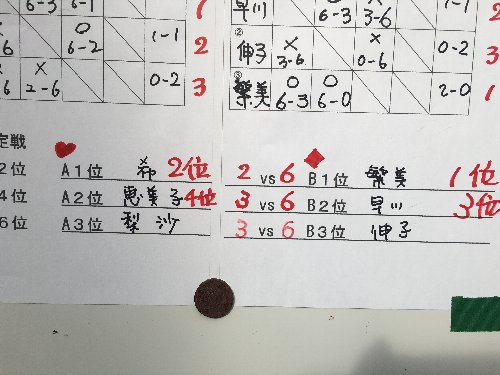 6-3 6-1 1
早川 6-3 3-6 1-1 2
-6 6-2 1-1 2
② 伸子 × 3-6 × 0-6 0-2 3
-6 × 2-6 0-2 3
③ 繁美 6-3 6-0 2-0 1
定戦
2位 A1位 希 2位 2 vs 6 B1位 繁美 1位
4位 A2位 恵美子 4位 3 vs 6 B2位 早川 3位
6位 A3位 梨沙 3 vs 6 B3位 伸子